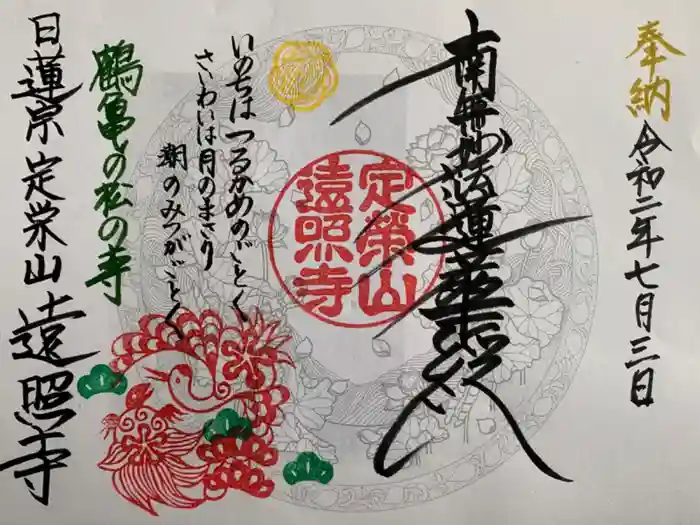 奉納
令和二年七月三日
南無妙法蓮華経
定榮山
遠照寺
いのちはつるかめのごとく
さいわいは月のまさり
潮のみつがごとく
鶴亀の松の寺
日蓮宗定栄山遠照寺